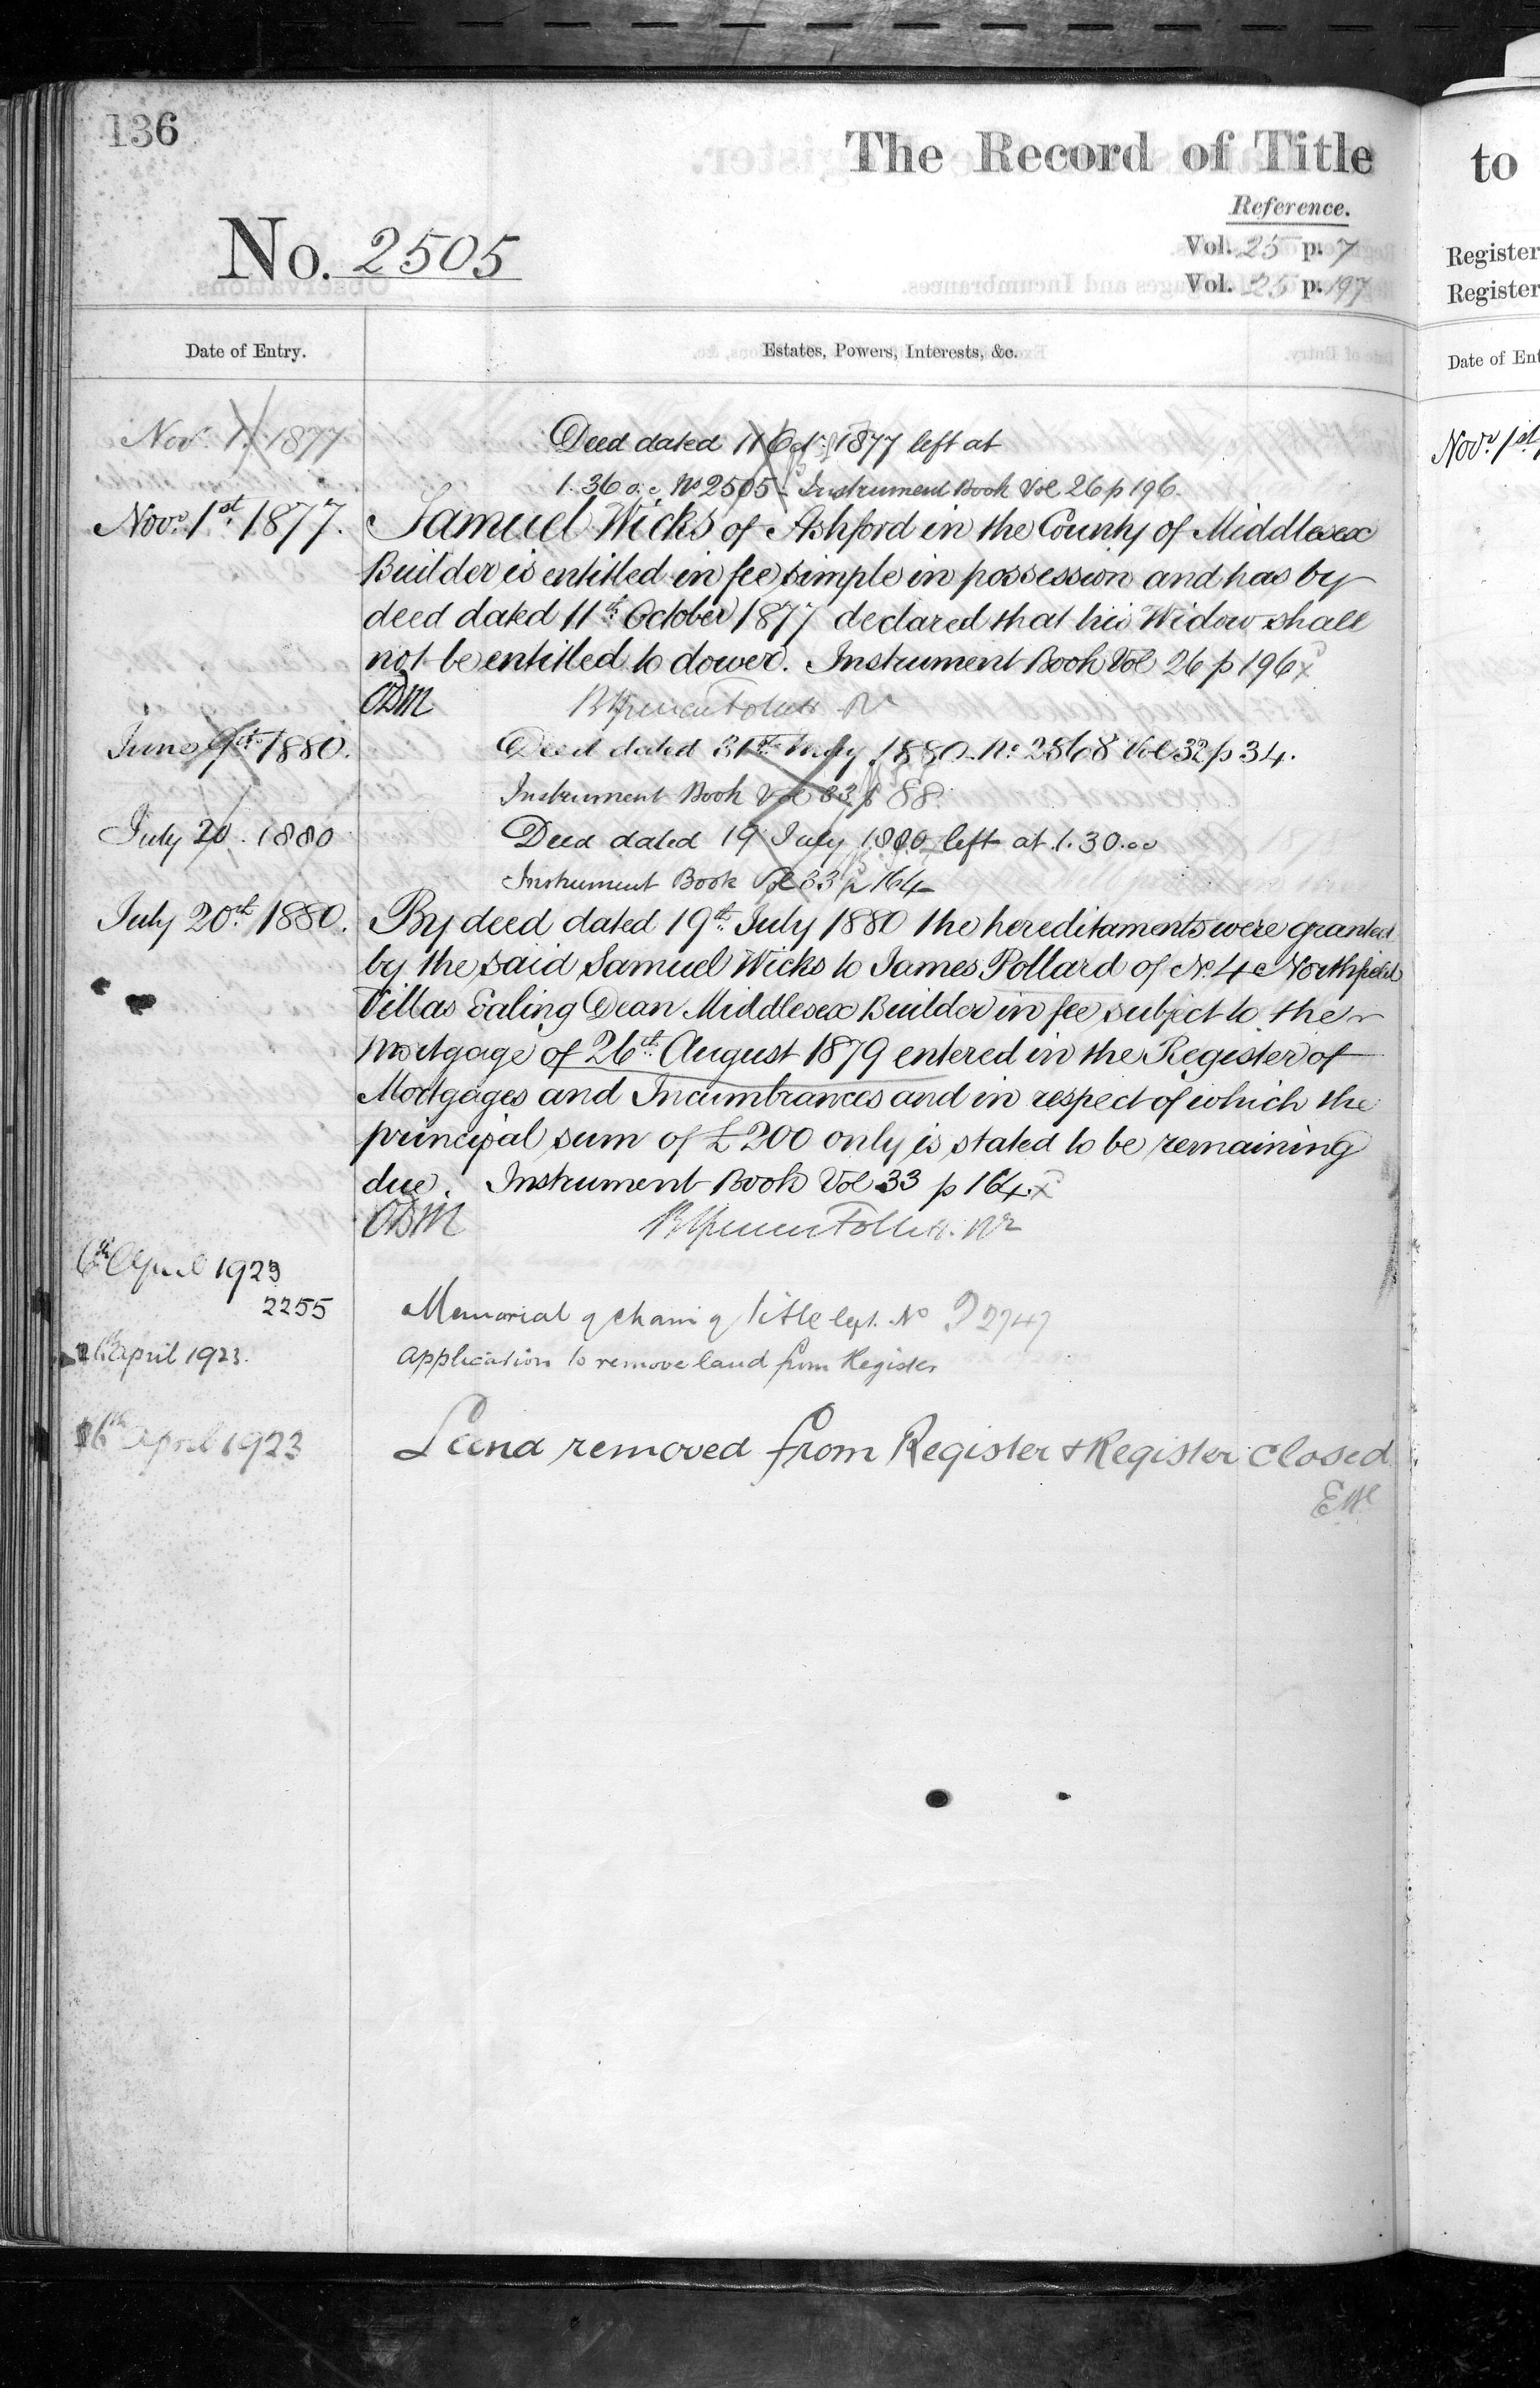 136
The Record of Title
Reference.
No. 2505
Vol. 25 p. 7
Vol. 25 p. 197
Date of Entry.
Estates, Powers, Interests, &c.
Nov. 1. 1877
Deed dated 11 Oct. 1877 left at
1.36 o.c. No 2505 - Instrument Book Vol 26 p 196.
Novr. 1st. 1877.
Samuel Wicks of Ashford in the County of Middlesex
Builder is entitled in fee simple in possession and has by
deed dated 11th October 1877 declared that his Widow shall
not be entitled to dower. Instrument Book Vol 26 p 196
June 9th 1880.
Deed dated 31st May 1880 No 2868 Vol 32 p 34.
Instrument Book Vol 33 p 88.
July 20. 1880
Deed dated 19 July 1880 left at 1.30. oc
Instrument Book Vol 33 p 164
July 20th. 1880.
By deed dated 19th July 1880 the hereditaments were granted
by the said Samuel Wicks to James Pollard of No. 4 Northfield
Villas Ealing Dean Middlesex Builder in fee subject to the
mortgage of 26th. August 1879 entered in the Register of
Mortgages and Incumbrances and in respect of which the
principal sum of £200 only is stated to be remaining
due. Instrument Book Vol 33 p 164.
6th April 1923
2255
Memorial of Title No
April 1923.
Application to remove land from Register
April 1923
Land removed from Register & Register closed
to
Register
Register
Date of Ent
Novr. 1st